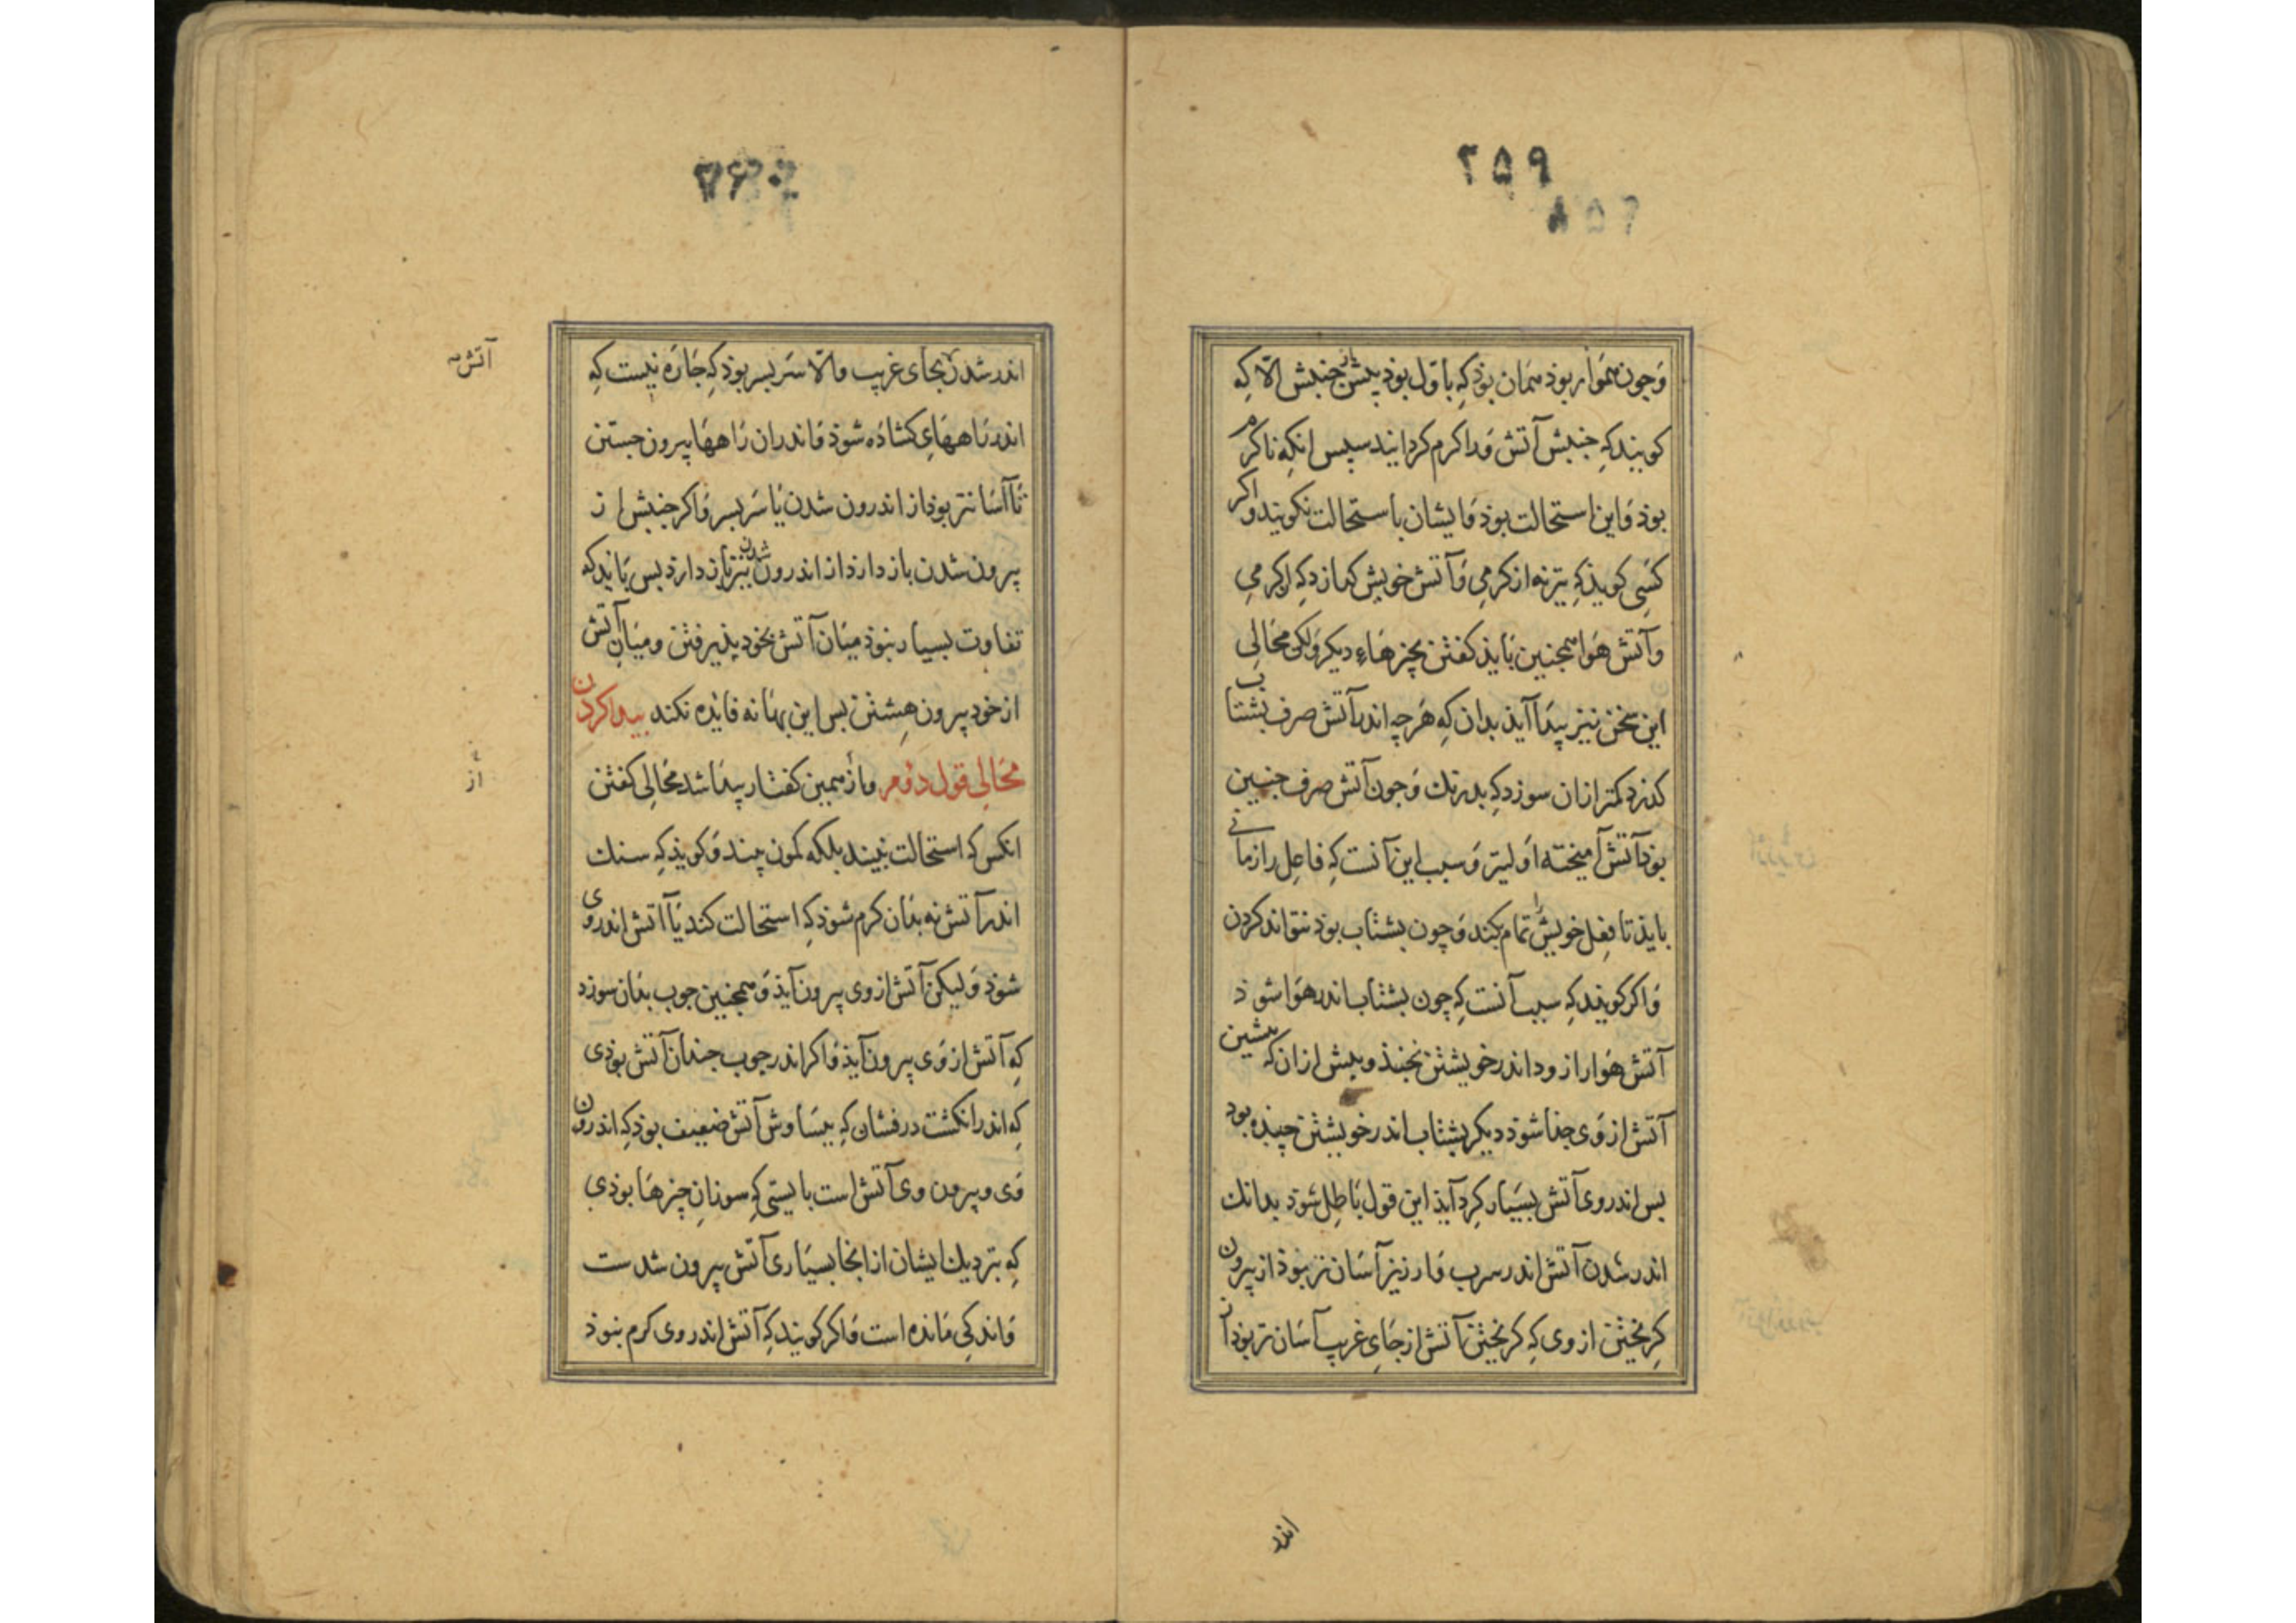 ۲۵۹
۲۵۸
وَجون همَوار بوذ همَان بوذ كه باوّل بوذ پیش از جنبش الّا كه
كویند كه جنبش آتش وَرا كرم كردانید سپس انكه نا كرم
بوذ وَاین استحالت بوذ وَایشان باستحالت نكویند وَاكر
كسَی كویذ كه تیر نه از كرمی وَآتش خویش كدازد كه از كرمی
وآتش هَوا همجنین بَایذ كفتن بچیزهَاءِ دیكر وَلكن محَالی
این سخن نیز پیدَا آیذ بدان كه هَرچه اندر آتش صرف بشتاب
كذرد كمتر ازان سوزد كه بدرنك وَجون آتش صرف جنین
بوذ آتش آمیخته اَولیتر وَسبب این آنست كه فاعِل را زمانی
بایذ تا فِعل خویش را تمام بكند وَچون بشتاب بوذ نتواند كردن
وَاكر كویند كه سبب آنست كه چون بشتاب اندر هَوا شوذ
آتش هَوا را زود اندر خویشتن نجنذ و پیش ازان كه پیشین
آتش از وَی جذا شوذ دیكر بشتاب اندر خویشتن چیذه بود
بس اندر وی آتش بسیَار كِرد آیذ این قول بَاطِل شوذ بدانك
اندر شدن آتش اندر سرب وَارزیز آسَان تر نبوذ از بیرون
كِریختن از وی كه كریختن آتش از جَایِ غریب آسَان تر بوذ از
اندر
۲۶۰
اندر شدن بجَای غریب والّا سَربسر بوذ كه چَارَه نیست كه
آتش
اندر رَاههَایِ كشاذَه شوذ وَاندران رَاههَا بیرون جستن
تَا آسَانتر بوذ از اندرون شدن یَا سَربسر وَاكر جنبش از
بیرون شدن باز دارد از اندرون شدن نیز باز دارد بس بَایذ كه
تفاوت بسیار نبوذ میَان آتش بخود پذیرفتن و میَان آتش
از خود بیرون هِشتن بس این بهَانه فَایده نكند پیدا كردن
محَالی قول دوُم وازهمین كفتار پیدَا شد محَالی كفتن
از
انكس كه استحالت نبیند بلكه كمون بیند وَكویذ كه سنك
اندر آتش نه بذَان كرم شوذ كه استحالت كند یَا آتش اندر وی
شوذ وَلیكن آتش از وی بیرون آیذ وَهمجنین جوب بذَان سوزد
كه آتش از وَی بیرون آیذ وَاكر اندر جوب جندان آتش بوذی
كه اندر انكشت درفشان كه ببسَاوش آتش ضعیف بوذ كه اندرون
وَی و بیرون وی آتش است بایستی كه سوزانِ چیزهَا بوذی
كه نزدیك ایشان از انجَا بسیَاری آتش بیرون شدست
وَاندكی مَانده است وَاكر كویند كه آتش اندر وی كرم نبوذ